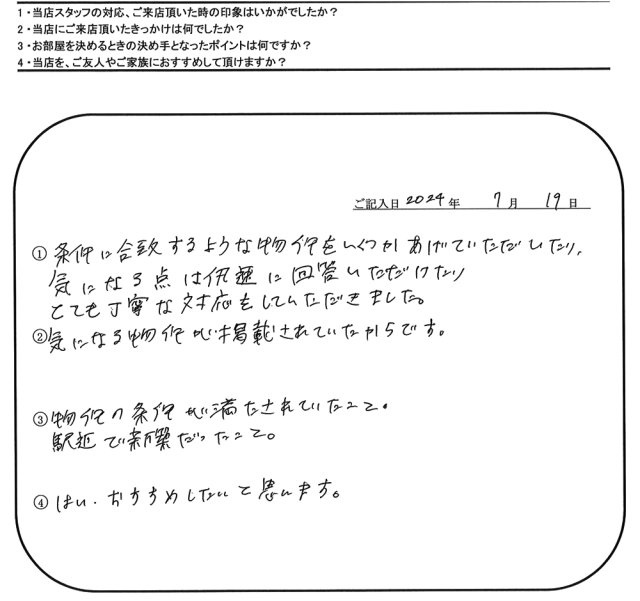 1・当店スタッフの対応、ご来店頂いた時の印象はいかがでしたか?
2・当店にご来店頂いたきっかけは何でしたか?
3・お部屋を決めるときの決め手となったポイントは何ですか?
4・当店を、ご友人やご家族におすすめして頂けますか?
ご記入日 2024 年 7 月 19 日
① 条件に合致するような物件をいくつかあげていただいたり、
気になる点は迅速に回答いただけたり
とても丁寧な対応をしていただきました。
② 気になる物件が掲載されていたからです。
③ 物件の条件が満たされていたこと。
駅近で新築だったこと。
④ はい。おすすめしたいと思います。